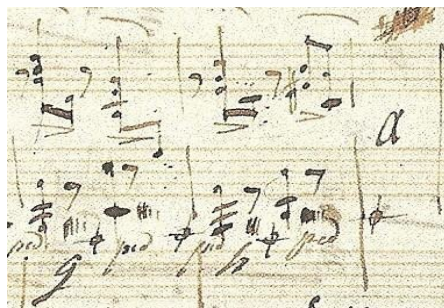 a
ped ped ped ped